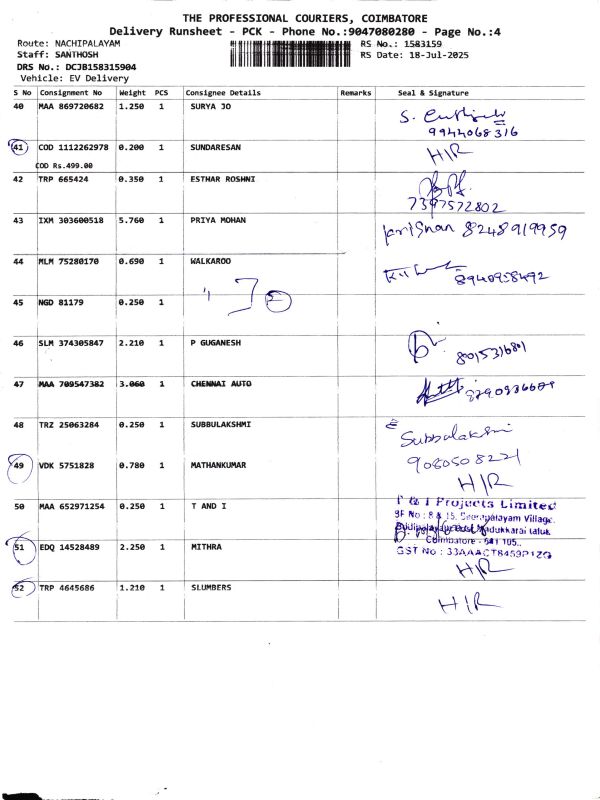 THE PROFESSIONAL COURIERS, COIMBATORE
Delivery Runsheet - PCK - Phone No.:9047080280 - Page No.:4
Route: NACHIPALAYAM RS No.: 1583159
Staff: SANTHOSH RS Date: 18-Jul-2025
DRS No.: DCJB158315904
Vehicle: EV Delivery
S No Consignment No Weight PCS Consignee Details Remarks Seal & Signature
40 MAA 869720682 1.250 1 SURYA JO
9944068316
41 COD 1112262978 0.200 1 SUNDARESAN H/R
COD Rs.499.00
42 TRP 665424 0.350 1 ESTHAR ROSHNI
7397572802
43 IXM 303600518 5.760 1 PRIYA MOHAN 8248919959
44 MLM 75280170 0.690 1 WALKAROO
8940958492
45 NGD 81179 0.250 1
46 SLM 374305847 2.210 1 P GUGANESH
47 MAA 709547382 3.060 1 CHENNAI AUTO
48 TRZ 25063284 0.250 1 SUBBULAKSHMI
Subbulakshmi
9080508221
49 VDK 5751828 0.780 1 MATHANKUMAR H/R
50 MAA 652971254 0.250 1 T AND I
T & I Projects Limited
SF No : 8 & 15, Seerapalayam Village,
Madukkarai taluk
Coimbatore - 641 105.
51 EDQ 14528489 2.250 1 MITHRA H/R
52 TRP 4645686 1.210 1 SLUMBERS H/R